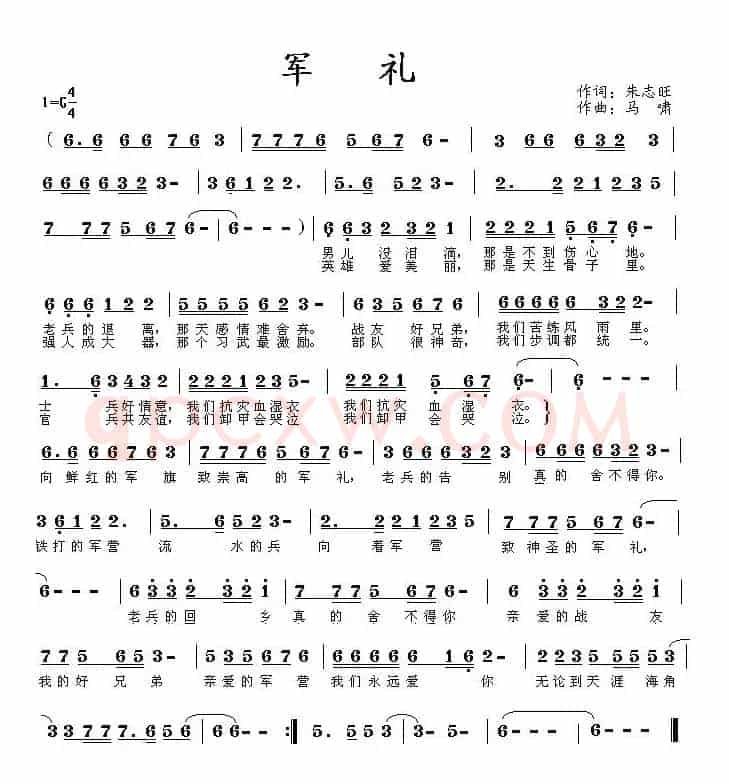 军 礼
1=G 4/4
作词：朱志旺
作曲：马 啸
( 6. 6 6 6 7 6 3 | 7 7 7 6 5 6 7 6- | 3 6 6 6 6 3 2 3
6 6 6 6 3 2 3- | 3 6 1 2 2. | 5. 6 5 2 3- | 2. 2 2 1 2 3 5
7 7 7 5 6 7 6- | 6- - - ) | 6 6 3 2 3 2 1 | 2 2 2 1 5 6 7 6-
男儿 没泪滴，那是不到伤心地。
英雄 爱美丽，那是天生骨子里。
6 6 6 1 2 2 | 5 5 5 5 6 2 3- | 6 3 5 6 7 6 | 6 6 6 6 6 3 2 3-
老兵的退 离，那天感情难舍弃。 战友 好兄弟，我们苦练风 雨里。
强人成大 器，那个习武最激励。 部队 很神奇，我们步调都 统一。
1. 6 3 4 3 2 | 2 2 2 1 2 3 5- | 2 2 2 1 5 6 7 6- | 6 - - -
士 兵好情意，我们抗灾血湿衣 我们抗灾 血 湿 衣。}
官 兵共友谊，我们卸甲会哭泣 我们卸甲 会 哭 泣。}
qpcxw.com
6. 6 6 6 7 6 3 | 7 7 7 6 5 6 7 6- | 3 6 6 6 3 2 3 | 6 6 6 6 3 2 3-
向鲜红的军 旗 致崇高的军礼，老兵的告 别 真的舍不得你。
3 6 1 2 2. | 5. 6 5 2 3- | 2. 2 2 1 2 3 5 | 7 7 7 5 6 7 6-
铁打的军营 流 水的兵 向 着军 营 致神圣的军 礼，
6- - - | 6 3 3 2 3 2 1 | 7 7 7 5 6 7 6- | 6 3 3 2 1 2 3
老兵的回 乡 真的舍不得你 亲爱的战 友
7 7 5 6 5 3- | 5 5 5 6 1 6- | 6 6 6 6 6 1 6 2- | 2 2 3 5 5 5 5 3
我的好 兄 弟 亲爱的军 营 我们永远爱 你 无论到天涯 海角
3 3 7 7 7. 6 5 6 | 6 6- - :| 5. 5 3 5 5 3 5 6 | 6 6- - ||